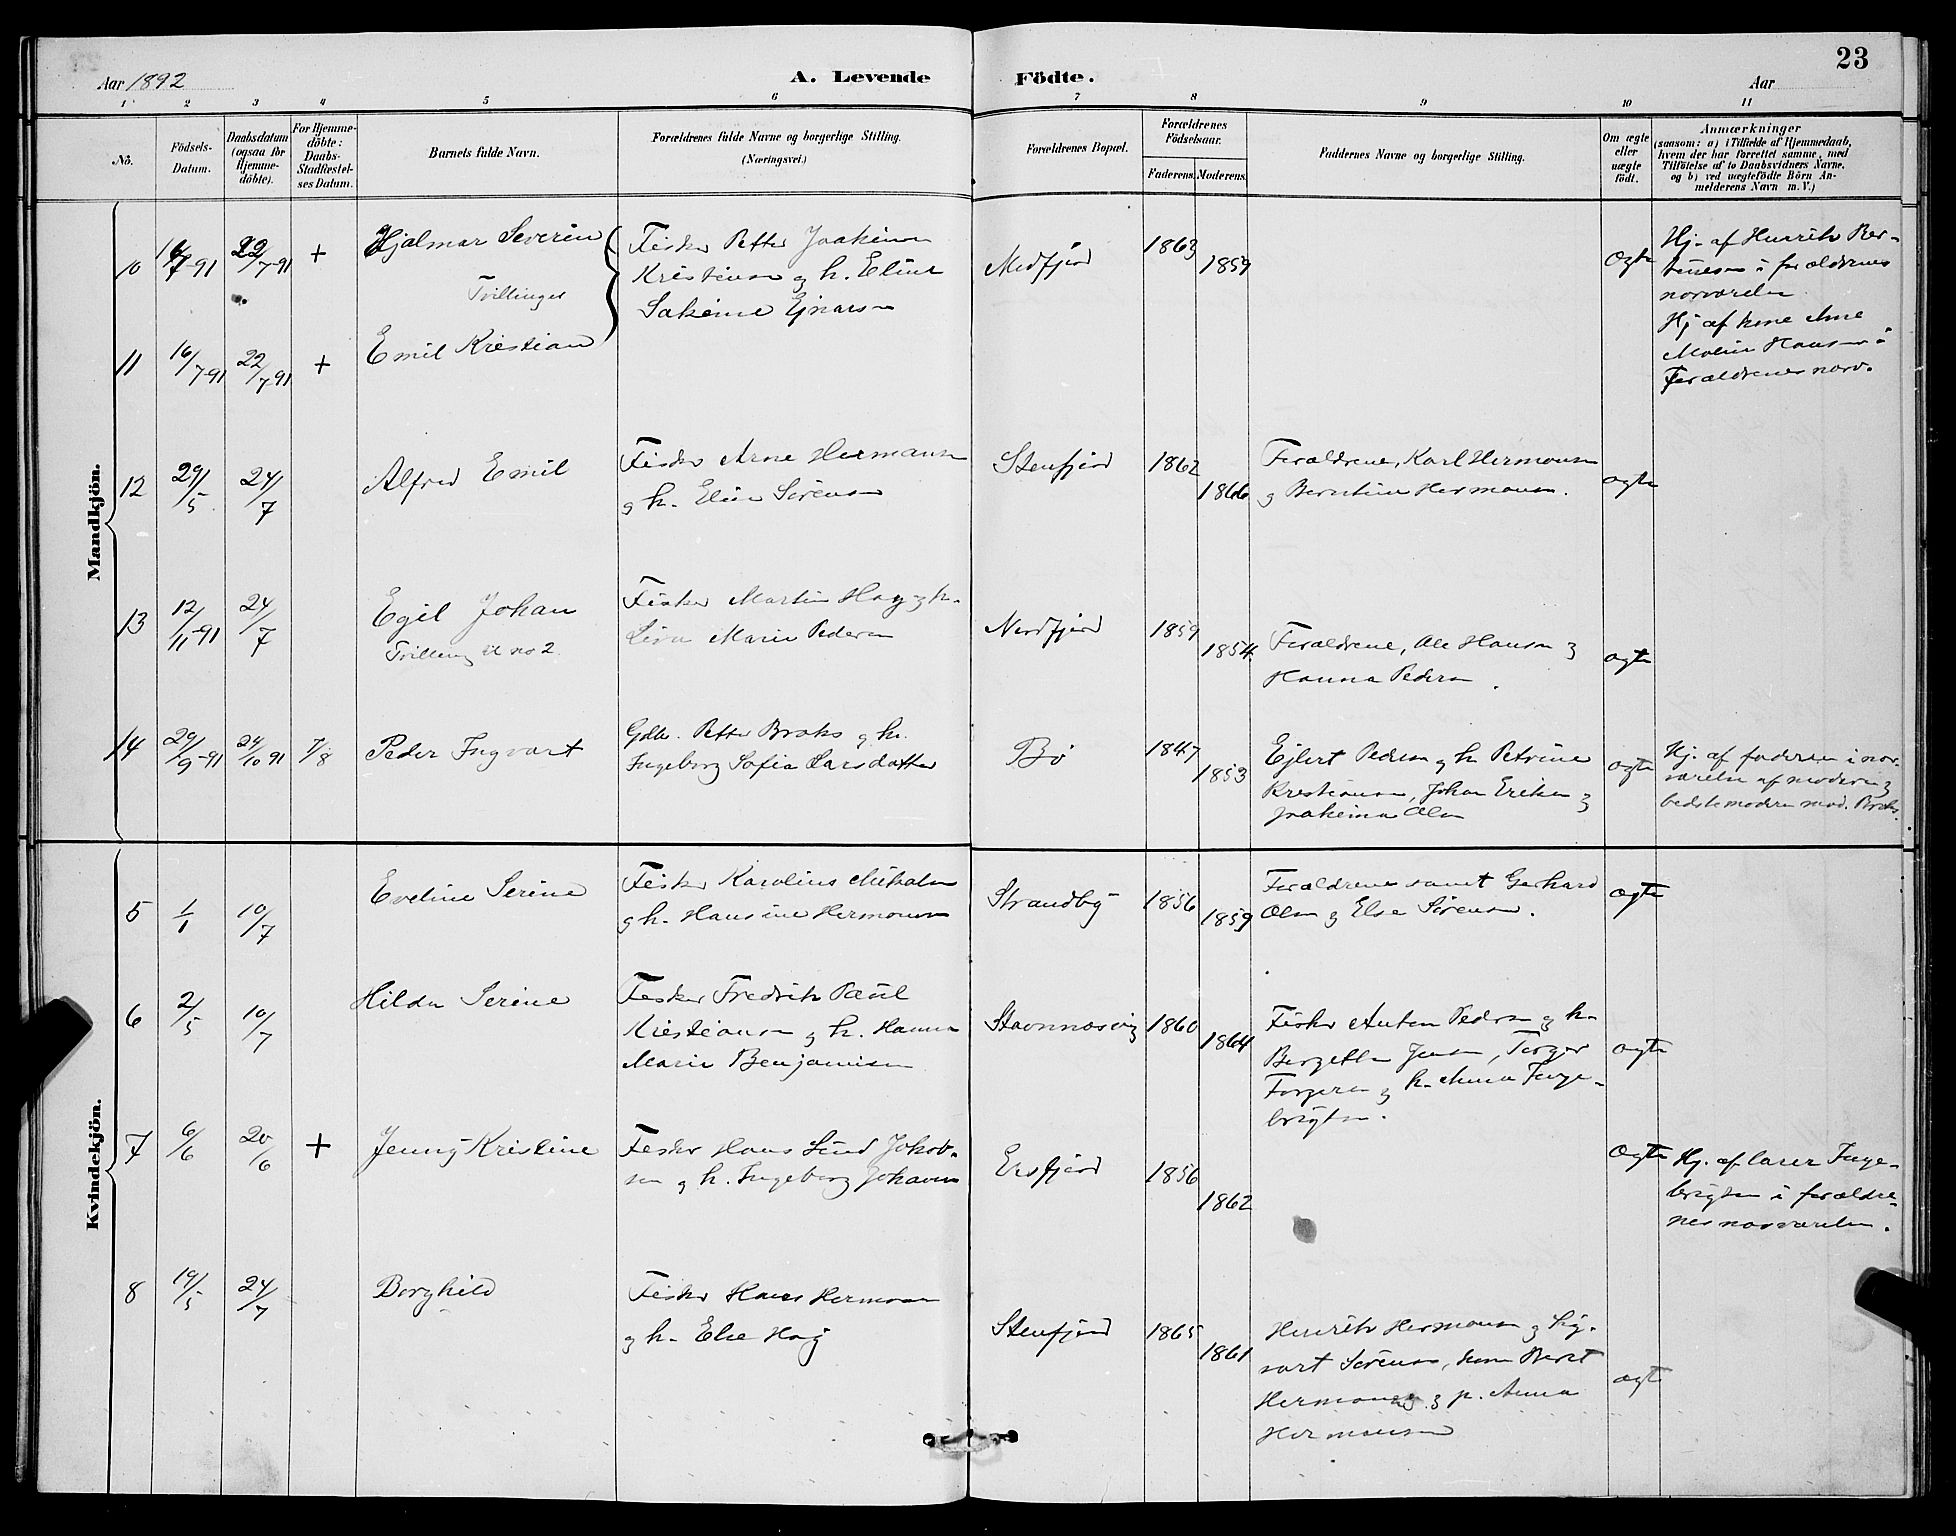 23
Aar 1892
A. Levende
Födte.
Aar
1 2 3 4 5 6 7 8 9 10 11
No.
Födsels-Datum.
Daabsdatum (ogsaa för Hjemme-döbte).
For Hjemme-döbte: Daabs-Stadfæstel-ses Datum.
Barnets fulde Navn.
Forældrenes fulde Navne og borgerlige Stilling.
(Næringsvei.)
Forældrenes Bopæl.
Forældrenes Födselsaar.
Faderens. Moderens.
Faddernes Navne og borgerlige Stilling.
Om ægte eller uægte födt.
Anmærkninger
(saasom: a) i Tilfælde af Hjemmedaab,
hvem der har forrettet samme, med
Tilföielse af to Daabsvidners Navne,
og b) ved uægtefödte Börn An-
melderens Navn m. V.)
Mandkjön.
10 16/7-91 22/7-91 + Hjalmar Severin
Tvillinger
Fisker Petter Joakim
Kristiansen og h. Eline
Sakrine Ejnarsen
Medfjord 1863 1859 ægte
Hj. af Henrik Ber-
tinesen i forældrenes
nærværelse
11 16/7-91 22/7-91 + Emil Kristian
Hj af kone Ane
Molin Hansen i
Forældrenes nærv.
12 29/5 24/7 Alfred Emil
Fisker Arne Hermansen
og h. Elin Sörensen
Stenfjord 1862 1866
Forældrene, Karl Hermansen
og Berntine Hermansen.
ægte
13 12/11-91 24/7 Egil Johan
Tvilling til no 2
Fisker Martin Hay og h.
Marie Pedersen
1859 1854
Forældrene, Ole Hansen og
Hanna Pedersen.
ægte
14 29/9-91 24/10 91 7/8 Peder Ingvart
Gdb. Petter Broks og h.
Ingeborg Sofia Larsdatter
Bö 1847 1853
Ejlert Pedersen og h Petrine
Kristiansen, Johan Eriksen og
Joakima Olsen
ægte
Hj. af faderen i nær-
værelse af moderen og
bedstemoderen mad. Broks.
Kvindekjön.
5 1/1 10/7 Eveline Serine
Fisker Karolius Mikalsen
og h. Hansine Hermansen
Strandby 1856 1859
Forældrene samt Gerhard
Olsen og Else Sörensen.
ægte
6 2/5 10/7 Hilda Serine
Fisker Fredrik Paul
Kristiansen og h. Hanna
Marie Benjaminsen
Stavnnæsvig 1860 1864
Fisker Anton Pedersen og h.
Bergette Jensen, Torger
Torgersen og h. Anna Inge-
brigtsen.
ægte
7 6/6 20/6 + Jenny Kristine
Fisker Hans Lind Jakob-
sen og h. Ingeborg Johansen
Ersfjord 1856 1862 ægte
Hj. af Larer Inge-
brigtsen i forældre-
nes nærværelse.
8 19/5 24/7 Borghild
Fisker Hans Hermansen
og h. Else Hay
Stenfjord 1865 1861
Henrik Hermansen og Sig-
vart Sörensen, kone Beret
Hermansen og p. Anna
Hermansen
ægte